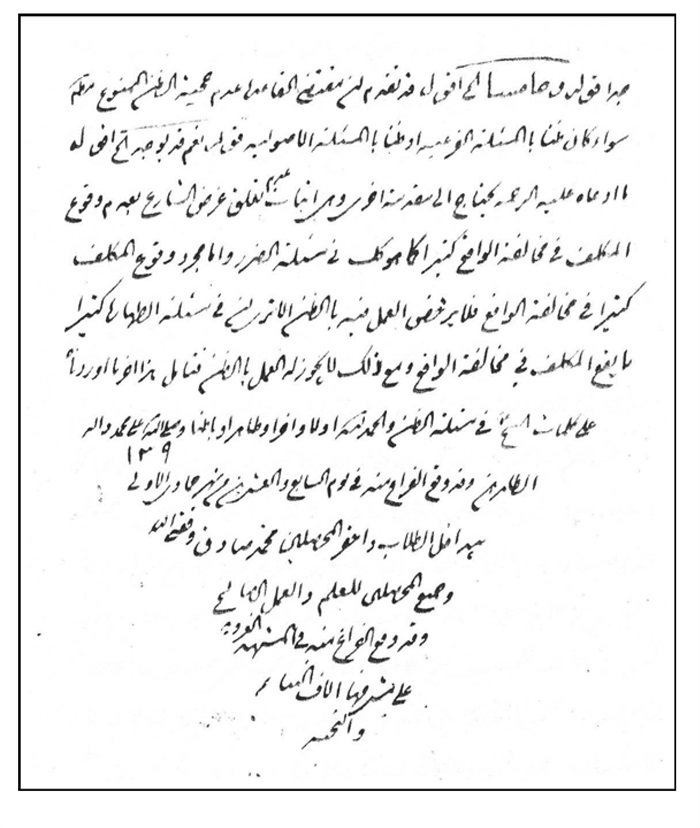 جدا قوله وحاصلها الخ اقول قد تقدم ان مقتضى القاعدة عدم حجية الظن الممنوع مطلقا
سواء كان ظنا بالمسئلة الفرعية او ظنا بالمسئلة الاصولية قوله نعم قد يوجه الخ اقول
ما ادعاه عليه الرحمة يحتاج الى مقدمة اخرى وهى اثبات عدم تعلق غرض الشارع بعدم وقوع
المكلف فى مخالفة الواقع كثيرا كما هو كك فى مسئلة الضرر والا مجرد وقوع المكلف
كثيرا فى مخالفة الواقع فلا يرخص العمل فيه بالظن الا ترى ان فى مسئلة الطهارة كثيرا
ما يقع المكلف فى مخالفة الواقع ومع ذلك لا يجوز له العمل بالظن فتامل هذا اخر ما اوردنا
على كلمات الشيخ فى مسئلة الظن والحمد لله اولا واخرا وظاهرا وباطنا وصلى الله على محمد واله
١٣٩
الطاهرين وقد وقع الفراغ منه فى يوم السابع والعشرين من شهر جمادى الاولى
بيد اقل الطلاب واحقر المحصلين محمد صادق وفقه الله
وجميع المحصلين للعلم والعمل الصالح
وقد وقع الفراغ منه فى المشهد الغروية
على مشرفها الاف الثناء
والتحية